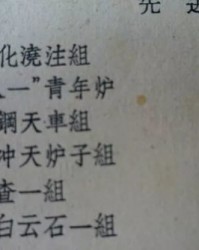 先进
化澆注組
一”青年炉
鋼天車組
冲天炉子組
查一組
白云石一組